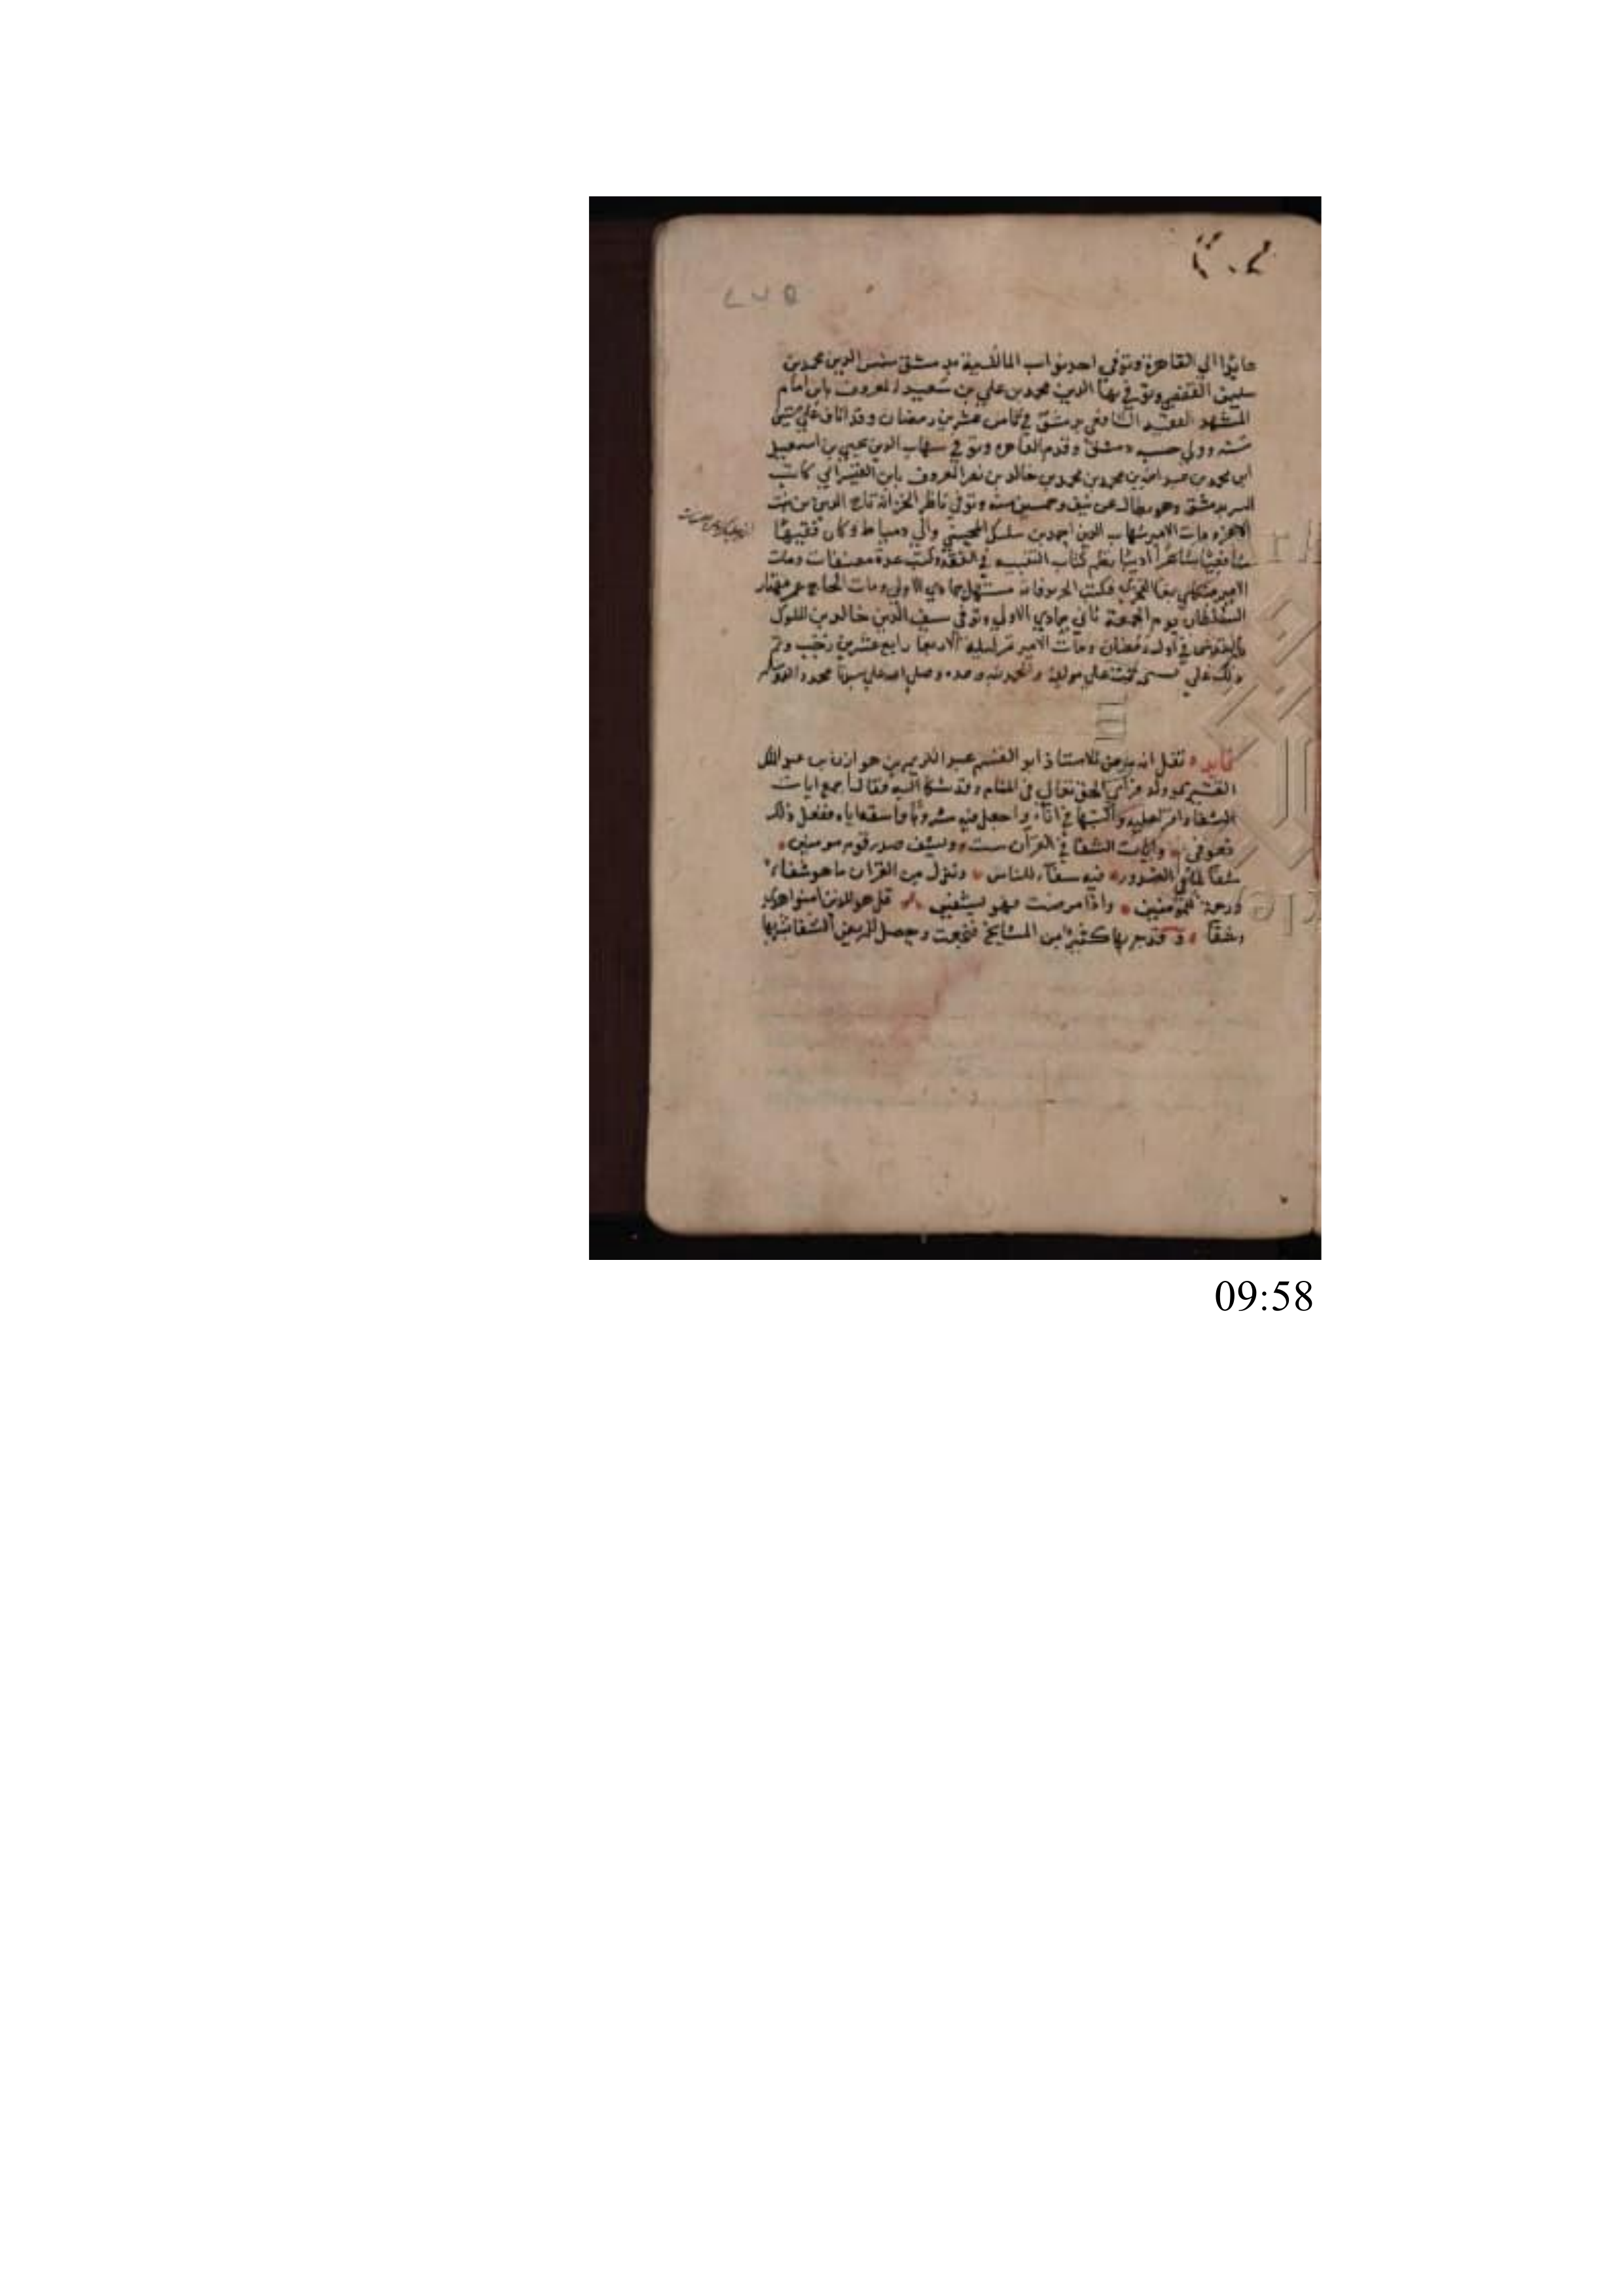 عايدا الي القاهرة وتوفي احد نواب المالكية بدمشق شمس الدين محمد بن
سليمن القفصي وتوفي بها الدين محمد بن علي بن سعيد المعروف بابن امام
المشهد الفقيه الشافعي بدمشق في ثامن عشرين رمضان وقد اناف علي ستين
سنه وولي حسبه دمشق وقدم القاهره وتوفي شهاب الدين يحيي بن اسمعيل
ابن محمد بن عبد الله بن محمد بن محمد بن خالد بن نصر المعروف بابن القيسراني كاتب
السر بدمشق وهو بطال عن نيف وخمسين سنه وتوفي ناظر الخزانه تاج الدين بن بنت
الاعز ومات الامير شهاب الدين احمد بن بيليك المحسني والي دمياط وكان فقيها
شافعيا شاعرا اديبا نظم كتاب التنبيه في الفقه وكتب عدة مصنفات ومات
الامير منكلي بغا الفخري مستهل جمادي الاولي ومات الحاج عمر مهتار
السلطان يوم الجمعة ثاني جمادي الاولي وتوفي سيف الدين خالد بن الملوك
في اول رمضان ومات الامير ليلة الاربعا رابع عشرين رجب وتم
ذلك علي والحمد لله وحده وصلي الله علي سيدنا محمد واله وسلم
فايده نقل انه مرض للاستاذ ابو القسم عبد الكريم بن هوازن بن عبد الملك
القشيري ولد فراي الحق تعالي في المنام وقد شكا اليه فقال اجمع ايات
الشفا واقرا عليه واكتبها في اناء واجعل فيه مشروبا واسقه اياه ففعل ذلك
فعوفي وايات الشفا في القران ست ويشف صدور قوم مومنين
شفا لما في الصدور فيه شفاء للناس وننزل من القران ما هو شفاء
ورحمة للمومنين واذا مرضت فهو يشفين قل هو للذين امنوا هدي
وشفا وقد جربها كثيرا من المشايخ فنجعت وحصل للمريض الشفا بها
09:58